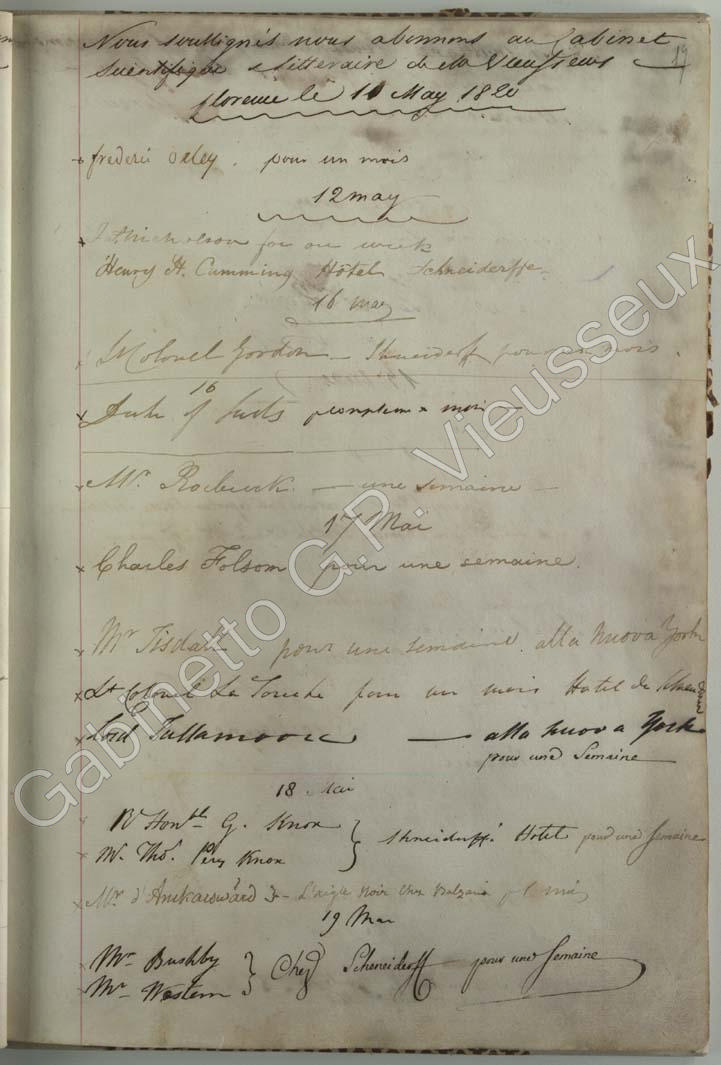 Nous soussignés nous abonnons au Cabinet
19
Scientifique & litteraire de Mr Vieusseux
florence le 10 May 1820
pour un mois
12 may
Nicholson for one week
Henry H. Cumming Hôtel Schneiderffe
16 may
Lt Colonel Gordon — Shneiderff pour un mois.
16
Mr. Roebuck — une semaine —
17 Mai
Charles Folsom pour une semaine.
Mr Tisdall pour une semaine. alla Nuova York
Lt Colonel La Touche pour un mois Hotel de
Lord Tullamoore — alla nuova York
pour une Semaine
18 Mai
Rt Honble G. Knox
Shneiderff's Hotel pour une Semaine
Mr. Thos. Pery Knox
Mr. d' — L'aigle Noir chez
19 Mai
Mr Bushby
Chez Scheneiderff — pour une Semaine
Mr Western
Gabinetto G.P. Vieusseux